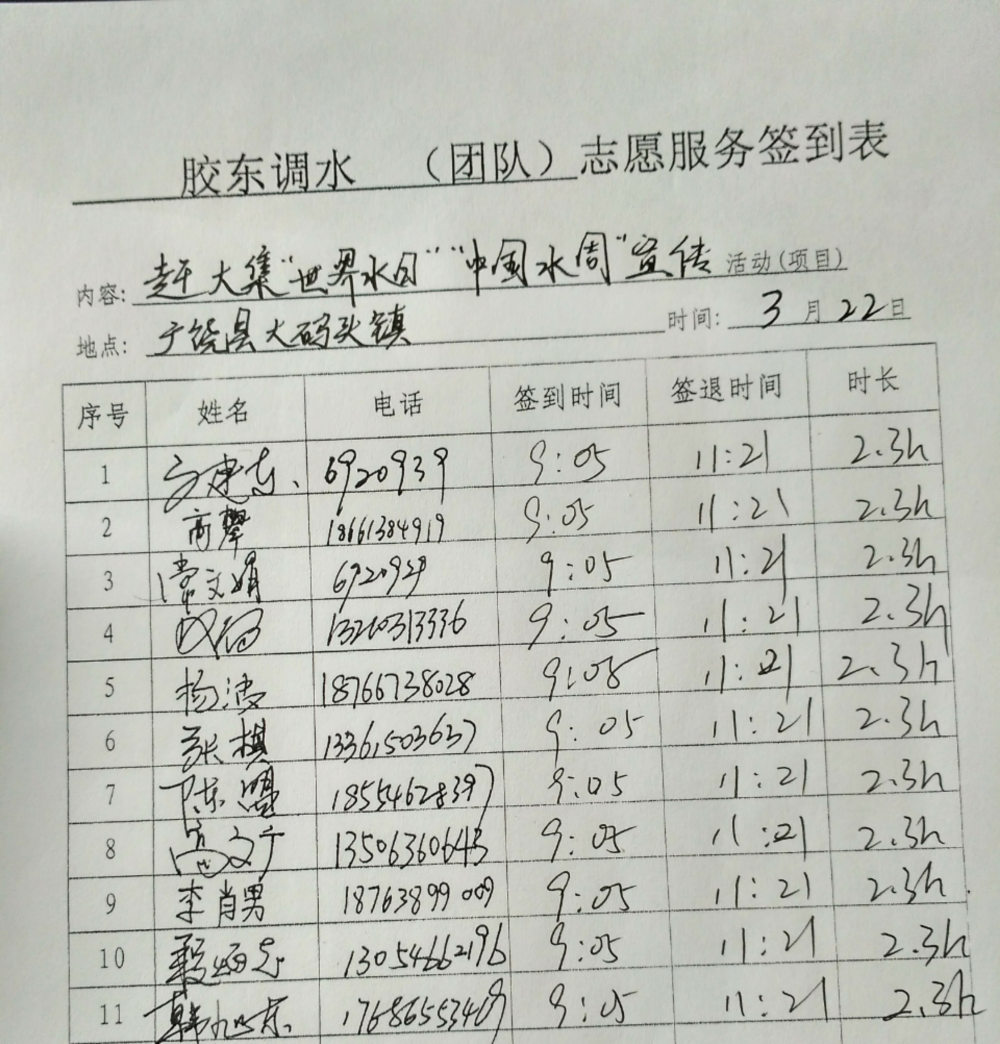 胶东调水 （团队）志愿服务签到表
内容：赶大集"世界水日""中国水周"宣传 活动(项目)
地点：广饶县大码头镇 时间：3月22日
序号 姓名 电话 签到时间 签退时间 时长
1 6920939 9:05 11:21 2.3h
2 高攀 18661384919 9:05 11:21 2.3h
3 常文娟 6920929 9:05 11:21 2.3h
4 9:05 11:21 2.3h
5 杨波 18766738028 9:05 11:21 2.3h
6 张棋 13361503637 9:05 11:21 2.3h
7 陈盟 18554628397 9:05 11:21 2.3h
8 13506360643 9:05 11:21 2.3h
9 李肖男 18763899009 9:05 11:21 2.3h
10 13054662196 9:05 11:21 2.3h
11 17686553409 9:05 11:21 2.3h